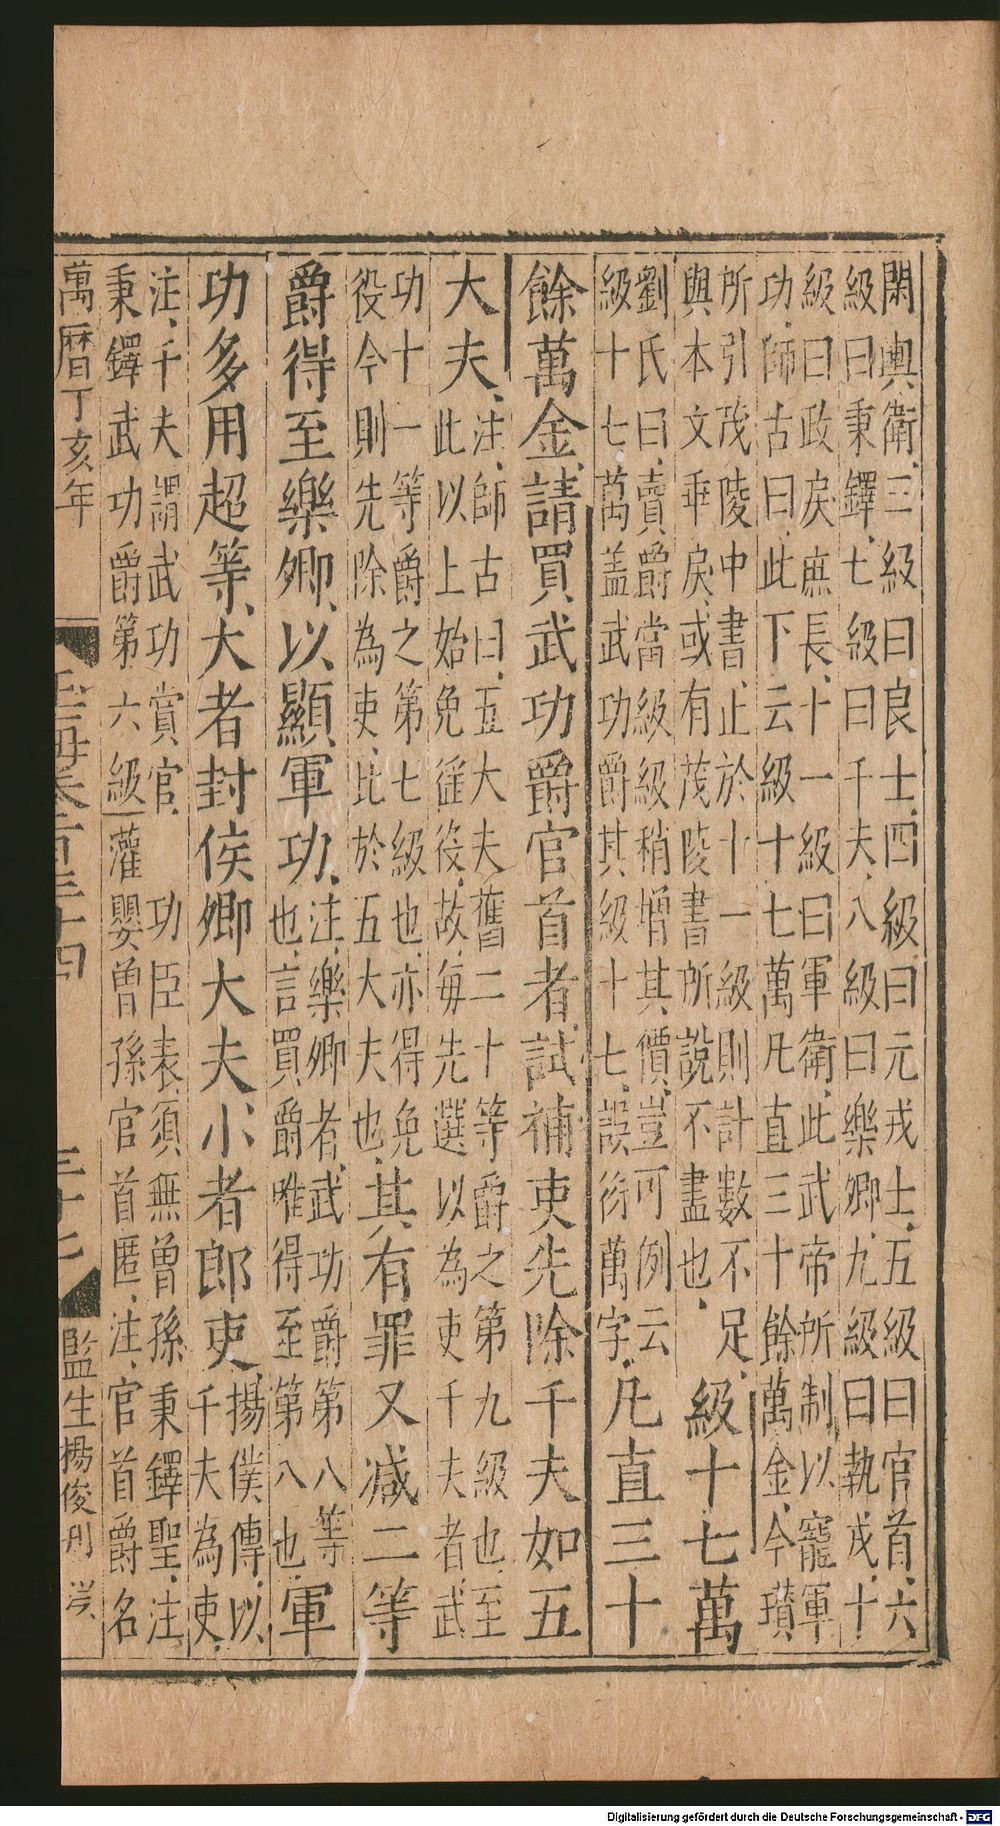 閑輿衛三級曰良士四級曰元戎士五級曰官首六
級曰秉鐸七級曰千夫八級曰樂卿九級曰執戎十
級曰政戾庶長十一級曰軍衛此武帝所制以寵軍
功師古曰此下云級十七萬凡直三十餘萬金今瓚
所引茂陵中書止於十一級則計數不足
與本文乖戾或有茂陵書所說不盡也
級十七萬
劉氏曰賣爵當級級稍增其價豈可例云
級十七萬盖武功爵其級十七誤衍萬字
凡直三十
餘萬金請買武功爵官首者試補吏先除千夫如五
大夫
注師古曰五大夫舊二十等爵之第九級也至
此以上始免徭役故每先選以為吏千夫者武
功十一等爵之第七級也亦得免
役今則先除為吏比於五大夫也
其有罪又減二等
爵得至樂卿以顯軍功
注樂卿者武功爵第八等
也言買爵唯得至第八也
軍
功多用超等大者封侯卿大夫小者郎吏
揚僕傳以
千夫為吏
注千夫謂武功賞官 功臣表須無曾孫秉鐸聖注
秉鐸武功爵第六級灌嬰曾孫官首匿注官首爵名
萬曆丁亥年
玉海卷百三十四
三十七
監生楊俊刋
Digitalisierung gefördert durch die Deutsche Forschungsgemeinschaft - DFG